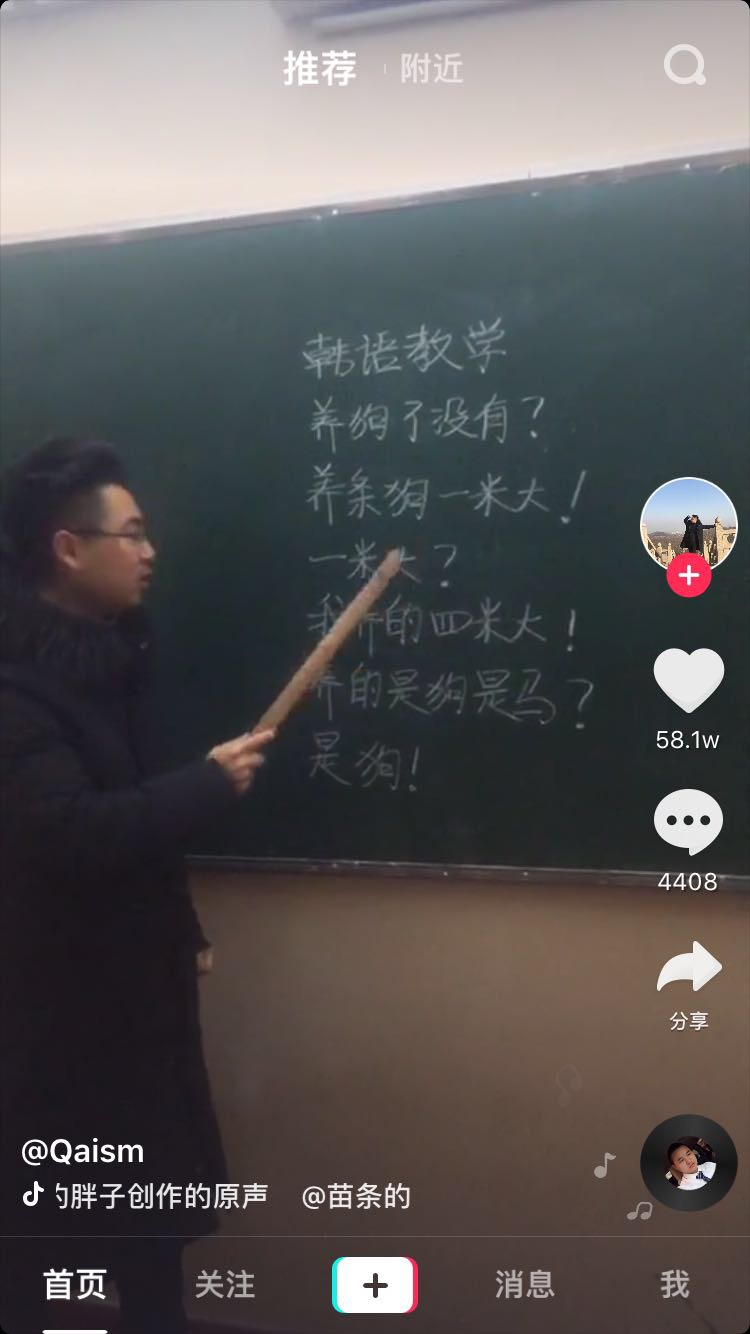 推荐 附近
韩语教学
养狗了没有？
养条狗一米大！
一米大？
我养的四米大！
养的是狗是马？
是狗！
58.1w
4408
分享
@Qaism
的胖子创作的原声 @苗条的
首页 关注 消息 我